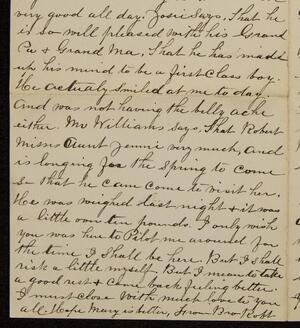 very good all day, Josie Says, That he
is so will pleased with his Grand
Pa & Grand Ma, That he has made
up his mind to be a first class boy.
He actualy smiled at me to day.
And was not having the belly ache
either. Mr Williams says, That Robert
Misses Aunt Jennie very much, and
is longing for the Spring to come
So that he can come to visit her.
He was weighed last night & it was
a little over ten pounds. I only wish
you was here to Pilot me around for
the time I shall be here. But I shall
risk a little myself, But I mean to take
a good rest & come back feeling better.
I must close With much love to you
all. Hope Mary is better, from Bro Robt